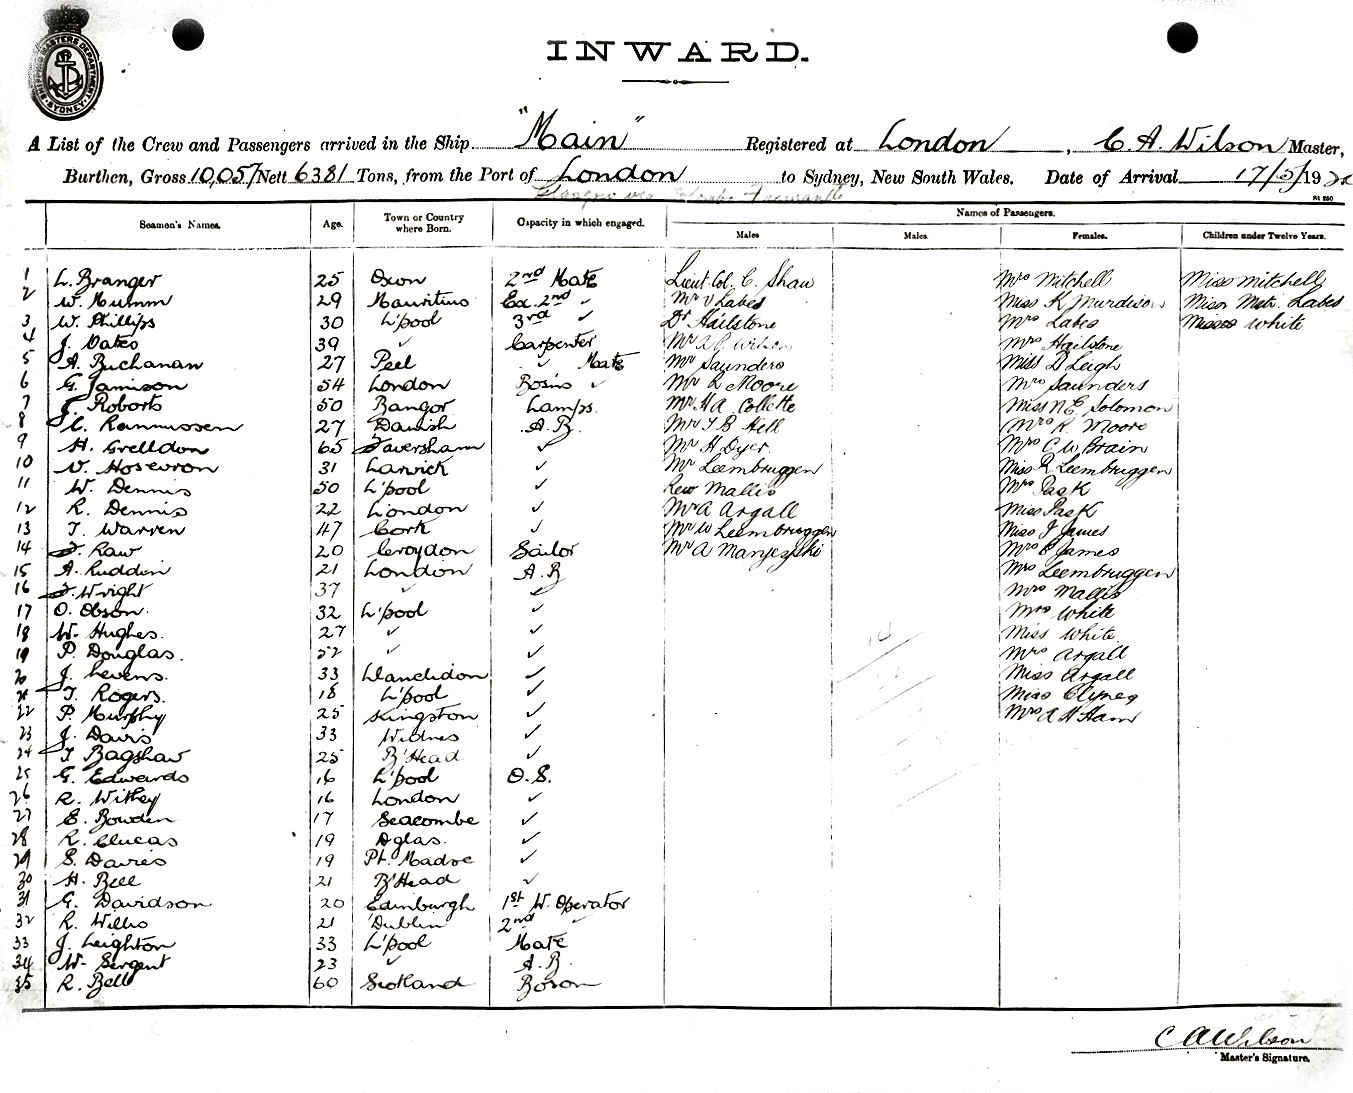 SHIPPING MASTERS DEPARTMENT SYDNEY
INWARD.
A List of the Crew and Passengers arrived in the Ship "Main" Registered at London, C. A. Wilson Master,
Burthen, Gross 10,057 Nett 6381 Tons, from the Port of London to Sydney, New South Wales. Date of Arrival 17/5/19
Fremantle
Names of Passengers.
Seamen's Names. Age. Town or Country where Born. Capacity in which engaged. Males Males. Females. Children under Twelve Years.
1 L. Branger 25 Oxon 2nd Mate Lieut Col. C. Shaw Mrs Mitchell Miss Mitchell
2 W. Mumm 29 Mauritius Ex. 2nd ✓ Mr V Labes Miss K Murdison Miss Labes
3 W. Phillips 30 L'pool 3rd ✓ Dr Hailstone Mrs Labes Misses White
4 J. Oates 39 ✓ Carpenter Mr A C Wilson Mrs Hailstone
5 A. Buchanan 27 Peel ✓ Mate Mr Saunders Miss D Leigh
6 G. Jamison 54 London Bosins ✓ Mr R Moore Mrs Saunders
7 J. Roberts 50 Bangor Lamps Mr H A Collette Miss N E Solomon
8 C. Rasmussen 27 Danish A.B. Mr T B Hell Mrs R. Moore
9 H. Grelldon 65 Faversham ✓ Mr H Dyer Mrs C W Brain
10 V. Hosevron 31 Larwick ✓ Mr Leembruggen Miss R Leembruggen
11 W. Dennis 50 L'pool ✓ Rev Mallis Mrs Pask
12 R. Dennis 22 London ✓ Mr A Argall Miss Pask
13 T. Warren 47 Cork ✓ Mr W Leembruggen Miss J James
14 F. Raw 20 Croydon Sailor Mr A Manjezyski Mrs E James
15 A. Ruddin 21 London A.B. Mrs Leembruggen
16 F. Wright 37 ✓ ✓ Mrs Mallis
17 O. Obson 32 L'pool ✓ Mrs White
18 W. Hughes. 27 ✓ ✓ Miss White
19 P. Douglas. 52 ✓ ✓ Mrs Argall
20 J. Levens. 33 Llanelidon ✓ Miss Argall
21 T. Rogers. 18 L'pool ✓ Miss Clynes
22 P. Murphy 25 Kingston ✓ Mrs A H Ham
23 J. Davis 33 Widnes ✓
24 T. Bagshaw 25 B'Head ✓
25 G. Edwards 16 L'pool O.S.
26 R. Withey 16 London ✓
27 E. Bowden 17 Seacombe ✓
28 R. Clucas 19 Dglas. ✓
29 S. Davies 19 Pt. Madoc ✓
30 H. Bell 21 B'Head ✓
31 G. Davidson 20 Edinburgh 1st W. Operator
32 R. Willis 21 Dublin 2nd ✓
33 J. Leighton 33 L'pool Mate
34 W. Sergent 23 ✓ A.B.
35 R. Bell 60 Scotland Boson
C A Wilson
Master's Signature.